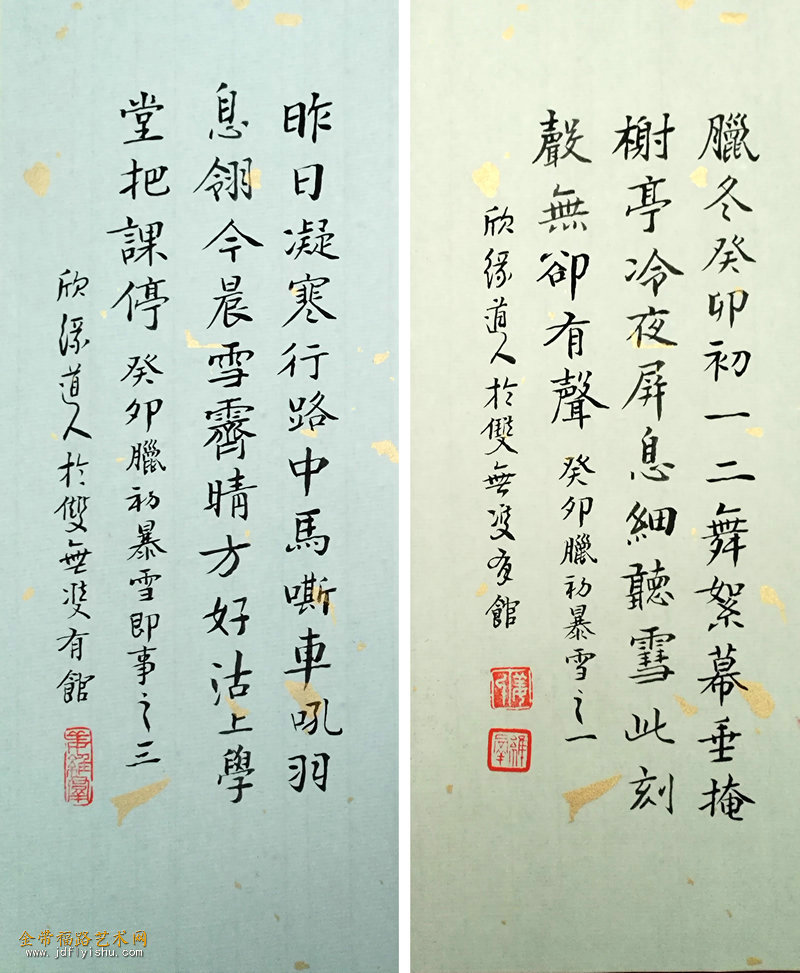 臘冬癸卯初一二舞絮幕垂掩
榭亭冷夜屏息細聽雪此刻
聲無卻有聲 癸卯臘初暴雪之一
欣緣道人於雙無雙有館
昨日凝寒行路中馬嘶車吼羽
息翎今晨雪霽晴方好沽上學
堂把課停 癸卯臘初暴雪即事之三
欣緣道人於雙無雙有館
金带福路艺术网
www.jdflyishu.com